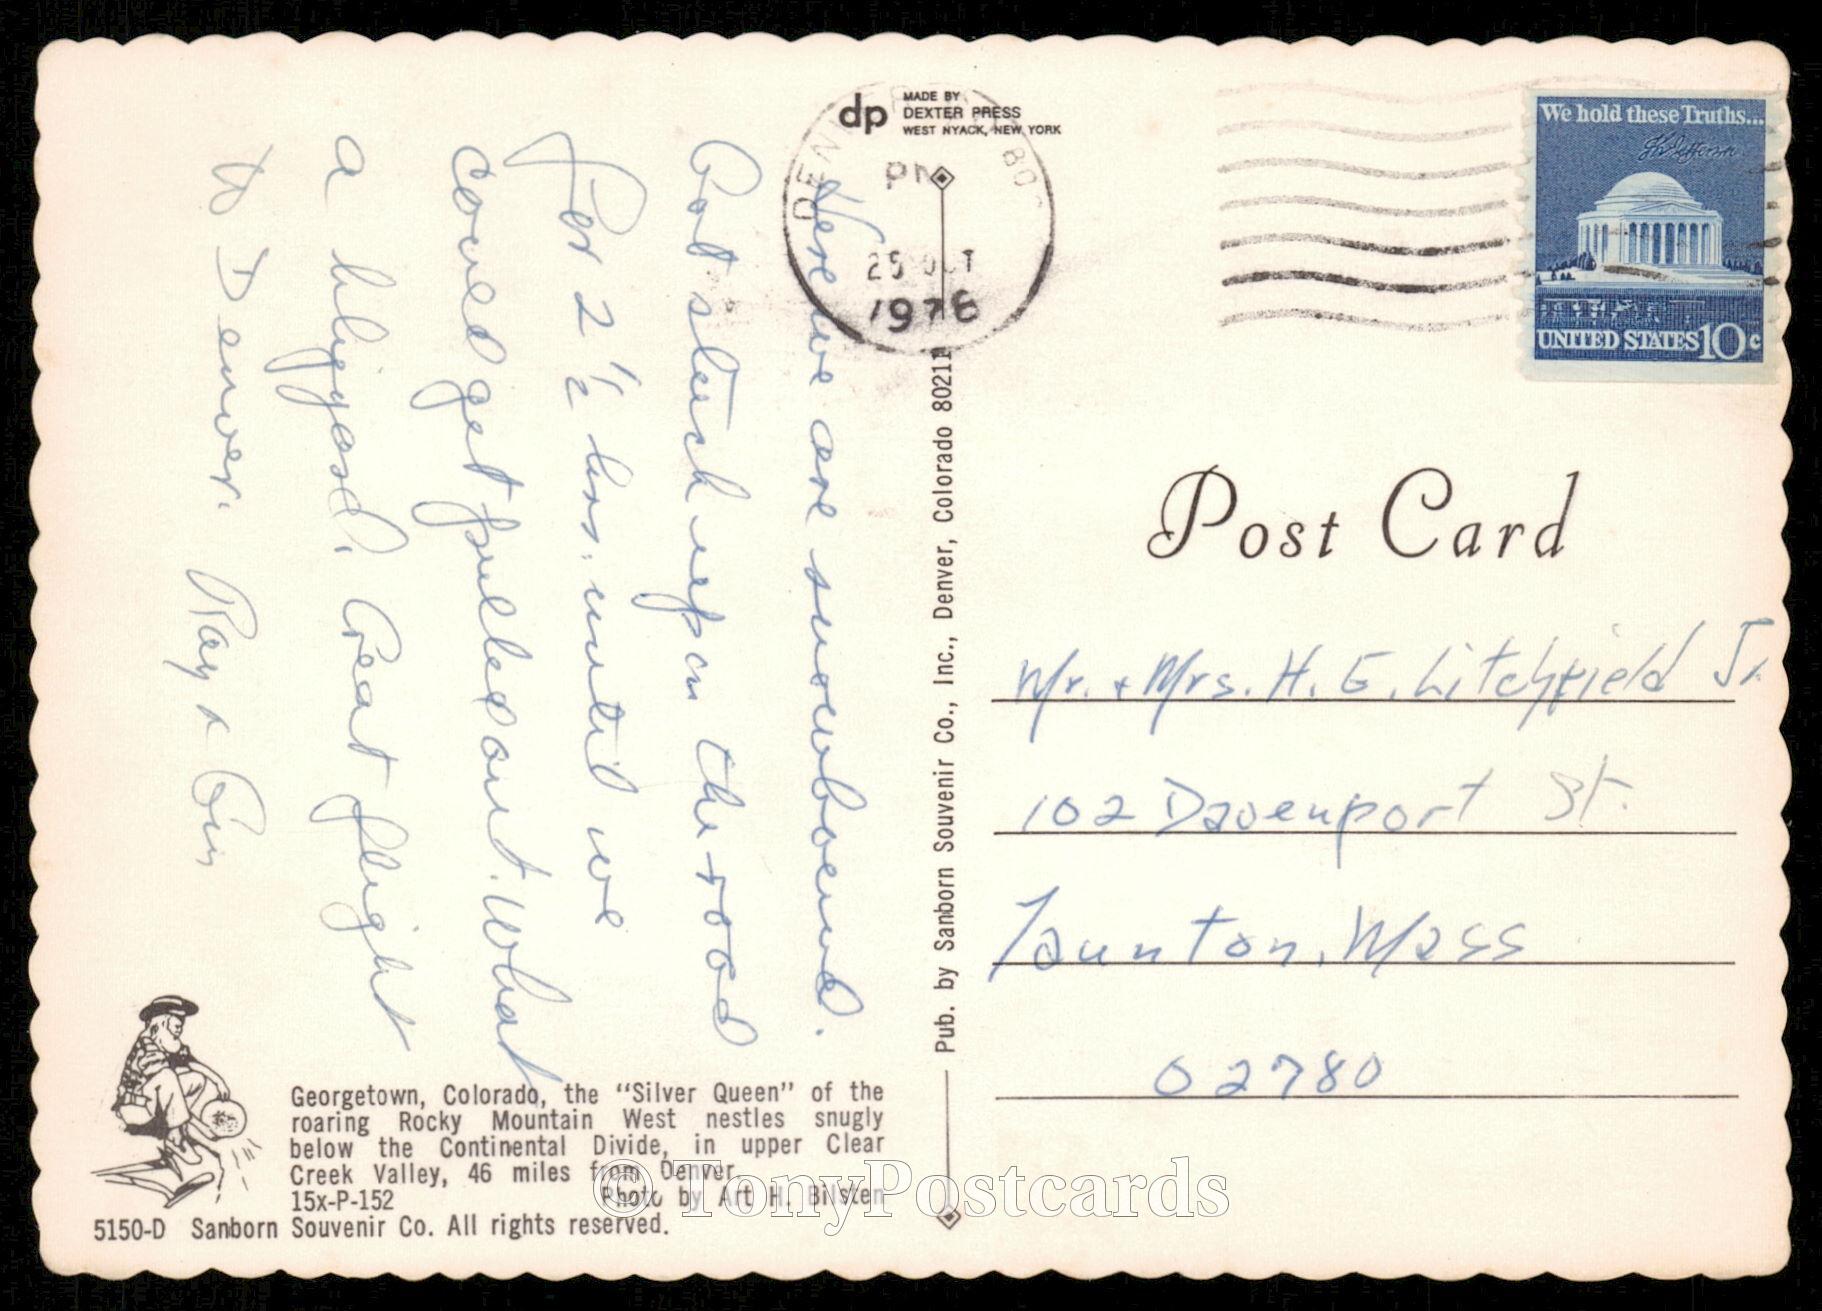 dp
MADE BY
DEXTER PRESS
WEST NYACK, NEW YORK
DENVER
PM
25 OCT
1976
We hold these Truths...
Th Jefferson
UNITED STATES 10c
Here we are snowbound.
Got stuck up on the road
for 2 1/2 hrs. until we
could get pulled out. What
a blizzard. Great flight
to Denver.
Ray &
Pub. by Sanborn Souvenir Co., Inc., Denver, Colorado 80211
Post Card
Mr. + Mrs. H. G. Litchfield Jr.
102 Davenport St.
Taunton, Mass
02780
Georgetown, Colorado, the "Silver Queen" of the
roaring Rocky Mountain West nestles snugly
below the Continental Divide, in upper Clear
Creek Valley, 46 miles from Denver.
15x-P-152 Photo by Art H. Bilsten
5150-D Sanborn Souvenir Co. All rights reserved.
© TonyPostcards